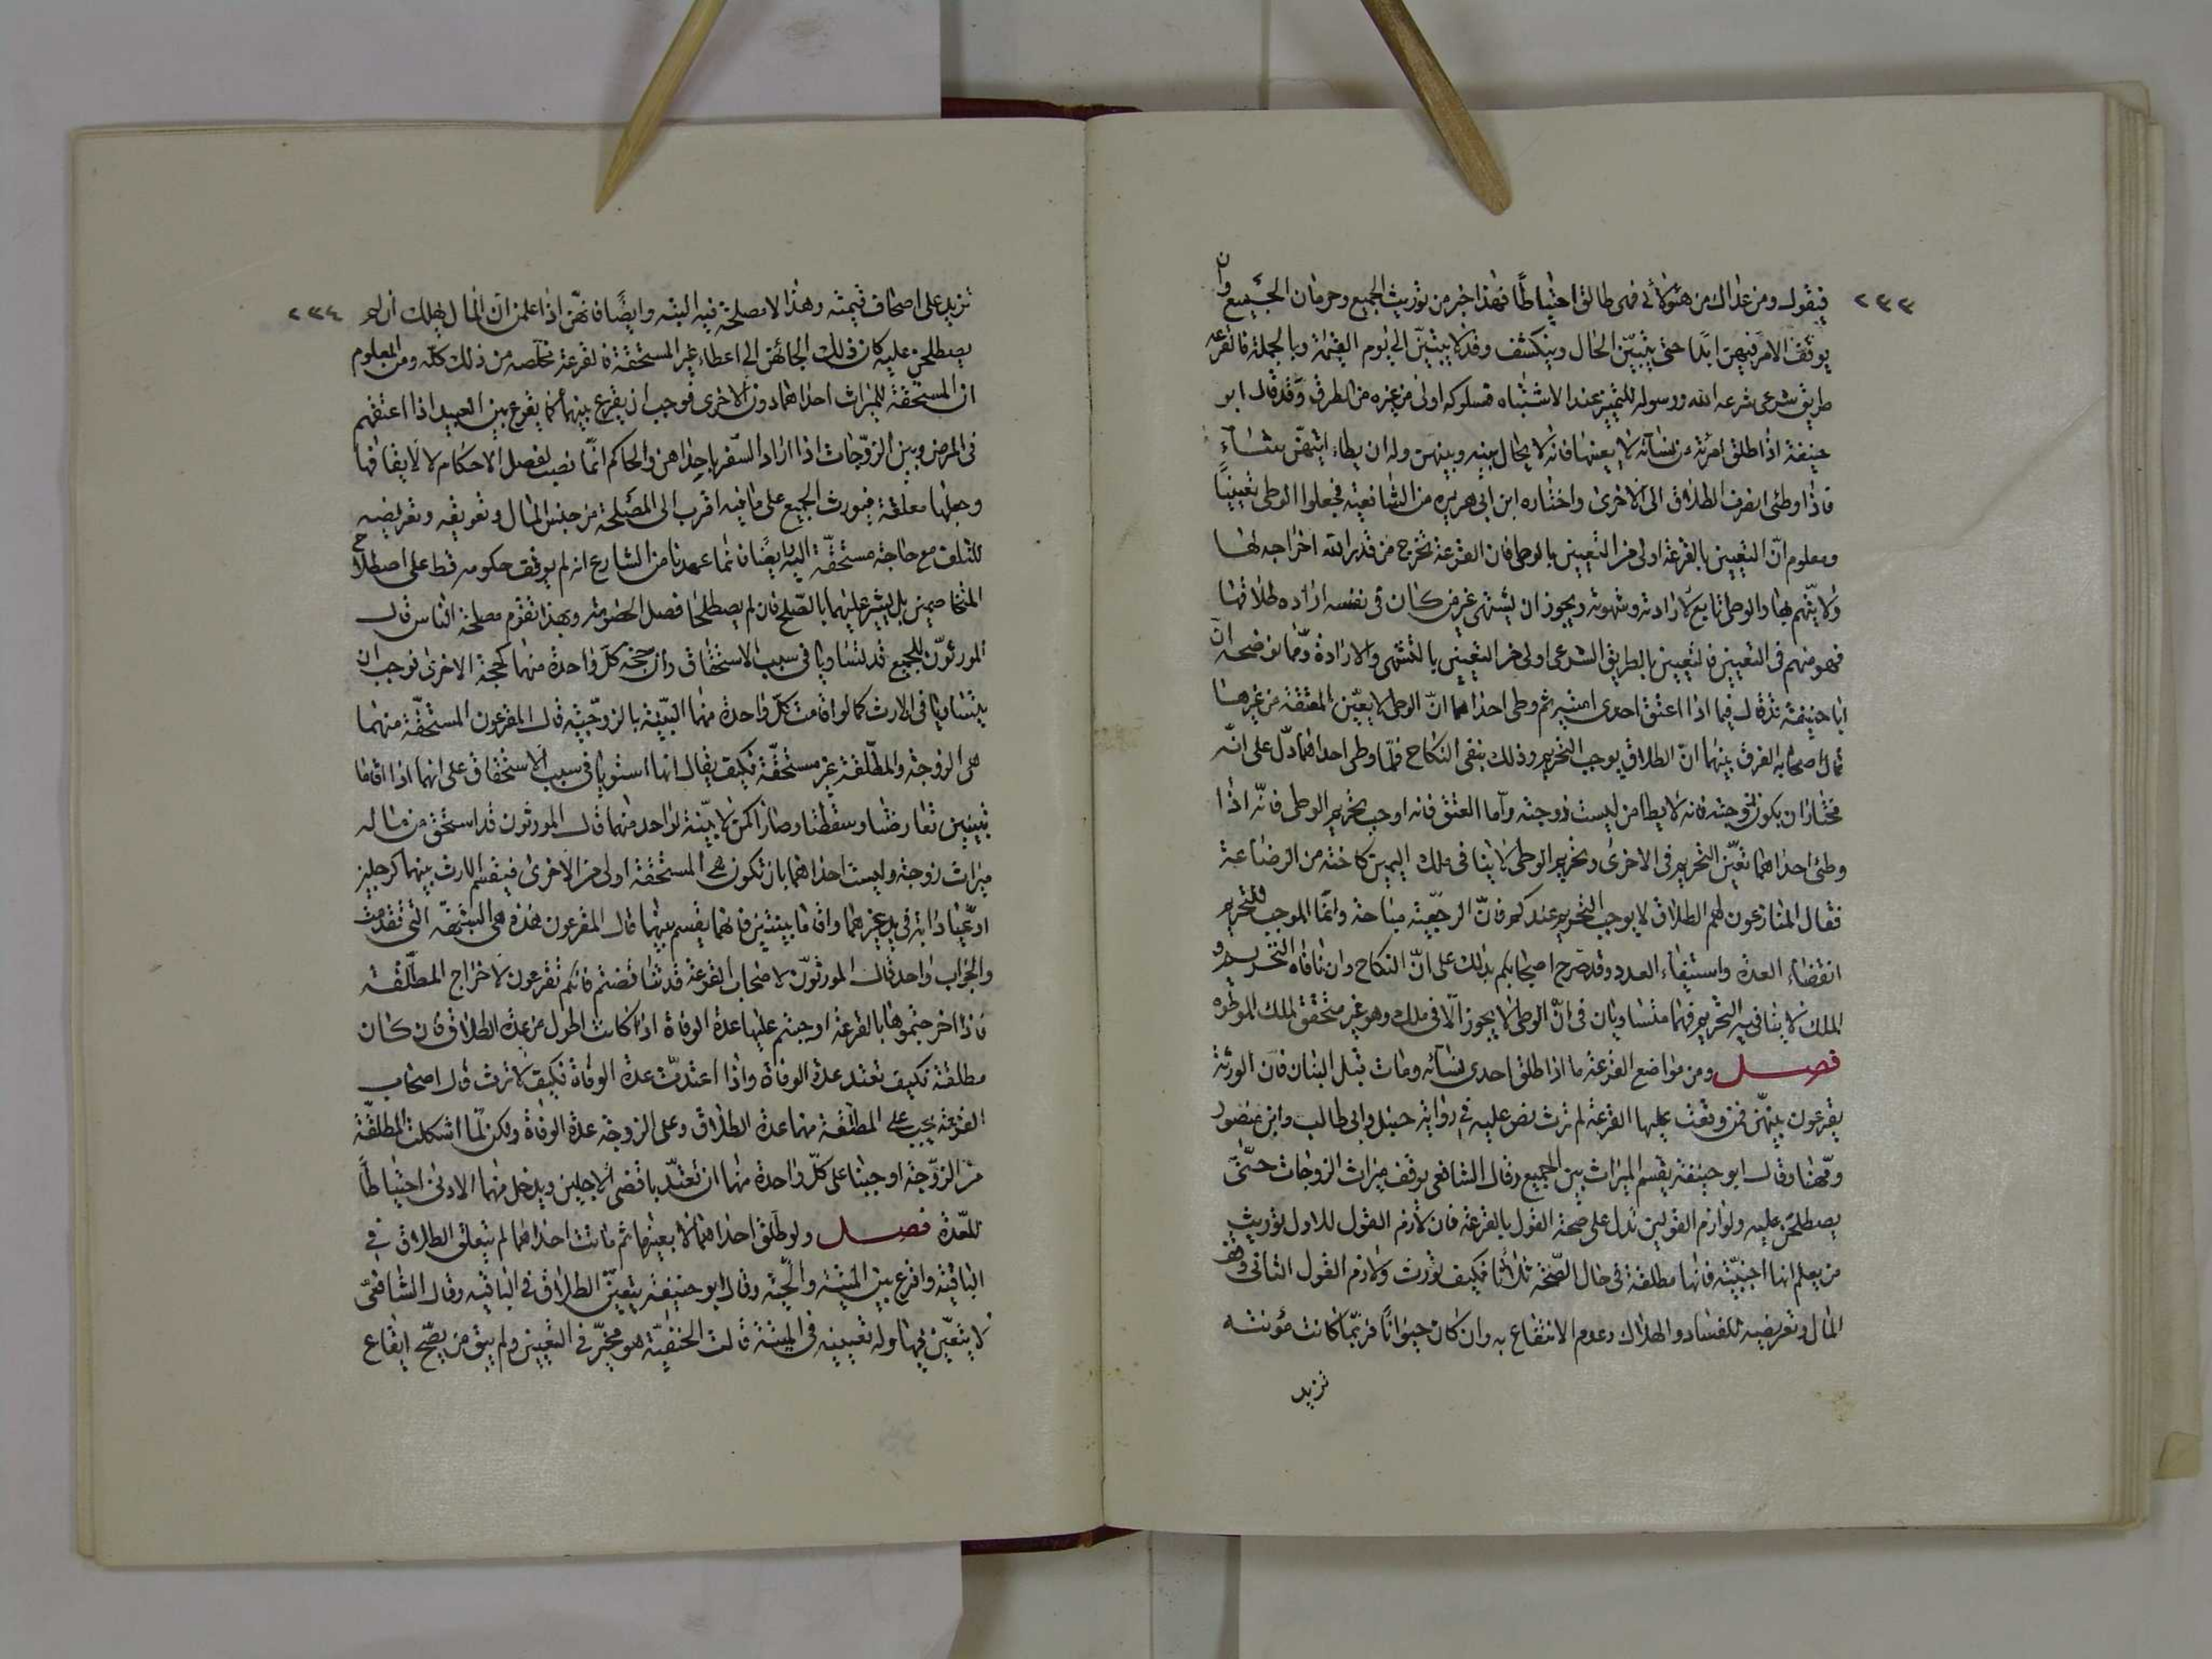 ٢٣٣
فيقول ومن عداك من هؤلائي فهى طالق احتياطًا فهذا خير من توريث الجميع وحرمان الجميع وان
يوقف الامر فيهن ابدا حتى يتبيّن الحال وينكشف وقد لا يتبيّن الى يوم القيمة وبالجملة فالقرعة
طريق شرعى شرعه الله ورسوله للتمييز عند الاشتباه فسلوكه اولى من غيره من الطرق وقد قال ابو
حنيفة اذا طلق امرئة من نسآئه لا بعينها فانه لا يحال بينه وبينهن وله ان يطاء ايتهنّ شآء
فاذا وطئى انصرف الطلاق الى الاخرى واختاره ابن ابى هريره من الشافعيه فجعلوا الوطى تعيينًا
ومعلوم انّ التعيين بالقرعة اولى من التعيين بالوطى فان القرعة تخرج من قدر الله اخراجه لها
ولا يتّهم بها والوطى تابع لارادته وشهوته ويجوز ان يشتهى غير من كان فى نفسه ارادة طلاقها
فهو متهم فى التعيين فالتعيين بالطريق الشرعى اولى من التعيين بالتشهى والارادة ومما يوضحه انّ
ابا حنيفة قد قال فيما اذا اعتق احدى امتيه ثم وطى احداهما انّ الوطى لا يعيّن المعتقة من غيرها
قال اصحابه الفرق بينهما انّ الطلاق يوجب التحريم وذلك ينفى النكاح فلمّا وطى احداهما دلّ على انّه
مختار ان يكون زوجته فانه لا يطا من ليست زوجته وآما العتق فانه اوجب تحريم الوطى فانّه اذا
وطئى احداهما تعيّن التحريم فى الاخرى وتحريم الوطى لا ينافى ملك اليمين كاخته من الرضاعة
فقال المنازعون لهم الطلاق لا يوجب التحريم عندكم فانّ الرجعيّة مباحة وانّما الموجب للتحريم
انقضاء العدة واستيفاء العدد وقد صرح اصحابكم بذلك على انّ النكاح وان نافاه التحريم و
الملك لا ينافيه التحريم فهما متساويان فى انّ الوطى لا يجوز الّا فى ملك وهو غير متحقق لملك الموطوه
فصل ومن مواضع القرعة ما اذا طلق احدى نسآئه ومات قبل البيان فان الورثة
يقرعون بينهنّ فمن وقعت عليها القرعة لم ترث نص عليه فى رواية حنبل وابى طالب وابن منصور
ومهنا وقال ابو حنيفة يقسم الميراث بين الجميع وقال الشافعى يوقف ميراث الزوجات حتّى
يصطلحن عليه ولوازم القولين تدل على صحة القول بالقرعة فان لازم القول للاول توريث
من يعلم انها اجنبيّة فانها مطلقة فى حال الصّحة ثلاثا فكيف تورث ولازم القول الثانى وقف
المال وتعريضه للفساد والهلاك وعدم الانتفاع به وان كان حيوانًا فربّما كانت مؤنته
تزيد
٢٣٤
تزيد على اضعاف قيمته وهذا لا مصلحة فيه البتة وايضًا فانهنّ اذا علمن انّ المال يهلك ان لم
يصطلحن عليه كان ذلك الجائهن الى اعطاء غير المستحقة فالقرعة مخلّصه من ذلك كلّه ومن المعلوم
ان المستحقة للميراث احداهما دون الاخرى فوجب ان يقرع بينهما كما يقرع بين العبيد اذا اعتقهم
فى المرض وبين الزّوجات اذا اراد السّفر باحداهن والحاكم انّما نصب لفصل الاحكام لا لايقافها
وجعلها معلقة فتورث الجميع على ما فيه اقرب الى المصلحة من حبس المال وتعويقه وتعريضه
للتلف مع حاجة مستحقّه اليه وايضًا فانما عهدنا من الشارع انه لم يوقف حكومه قط على اصطلاح
المتخاصمين بل يشير عليهما بالصّلح فان لم يصطلحا فصل الخصومة وبهذا تقوم مصلحة الناس قال
المورثوّن للجميع قد تساويا فى سبب الاستحقاق وان حجة كلّ واحدة منهما كحجة الاخرى فوجب ان
يتساويا فى الارث كما لو اقامت كلّ واحدة منهما البيّنة بالزوجيّه قال المقرعون المستحقّة منهما
هى الزوجة والمطلّقة غير مستحقّة فكيف يقال انها استويا فى سبب الاستحقاق على انهما اذا اقاما
بيّنتين تعارضتا وسقطتا وصارا كمن لا بيّنة لواحد منهما قال المورثون قد استحق من ماله
ميراث زوجة وليست احداهما بان تكون هى المستحقة اولى من الاخرى فيقسم الارث بينهما كرجلين
ادّعيا دابة فى يد غيرهما واقاما بينتين فانهما يقسم بينهما قال المقرعون هذه هى الشبهة التى تقدمت
والجواب واحد قال المورثوّن لاصحاب القرعة قد تناقضتم فانكم تقرعون لاخراج المطلّقة
فاذا اخرجتموها بالقرعة اوجبتم عليها عدة الوفاة اذا كانت اطول من عدة الطلاق فان كان
مطلقة فكيف تعتد عدة الوفاة واذا اعتدّت عدة الوفاة فكيف لا ترث قال اصحاب
القرعة يجب على المطلّقة منهما عدة الطلاق وعلى الزوجة عدة الوفاة ولكن لمّا اشكلت المطلّقة
من الزوّجة اوجبنا على كلّ واحدة منهما ان تعتدّ باقضى الاجلين ويدخل منهما الادنى احتياطًا
للعّدة فصل ولو طلّق احداهما لا بعينها ثم ماتت احداهما لم يتعلق الطلاق فى
الباقية واقرع بين الميتة والحيّه وقال ابو حنيفة يتعيّن الطلاق فى الباقيه وقال الشافعىّ
لا يتعيّن فيها وله تعيينه فى الميتة قالت الحنفيّة هو مخيّر فى التعيين ولم يبق من يصّح ايقاع